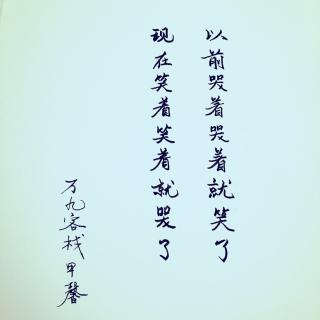 以前哭着哭着就笑了
现在笑着笑着就哭了
万九客栈甲馨